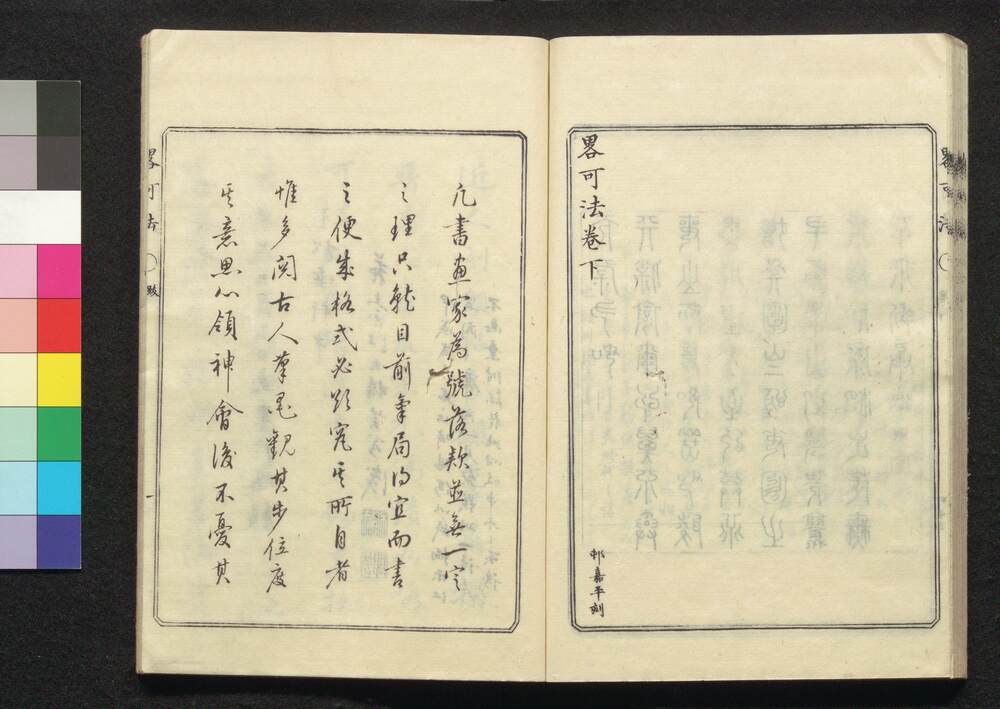 畧可法卷下
邨嘉平刻
凢書畫家為號落款並無一定
之理只就目前章局得宜而書
之便成格式必欲究其所自者
惟多閱古人筆墨觀其步位度
其意思心領神會後不憂其
畧可法
畧可法